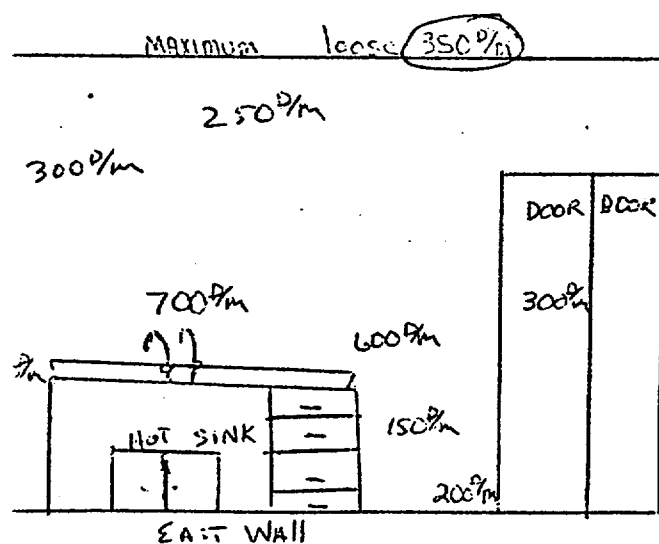 MAXIMUM loose 350 D/m
250 D/m
300 D/m
DOOR DOOR
300 D/m
700 D/m
600 D/m
D/m
150 D/m
HOT SINK
200 D/m
EAST WALL